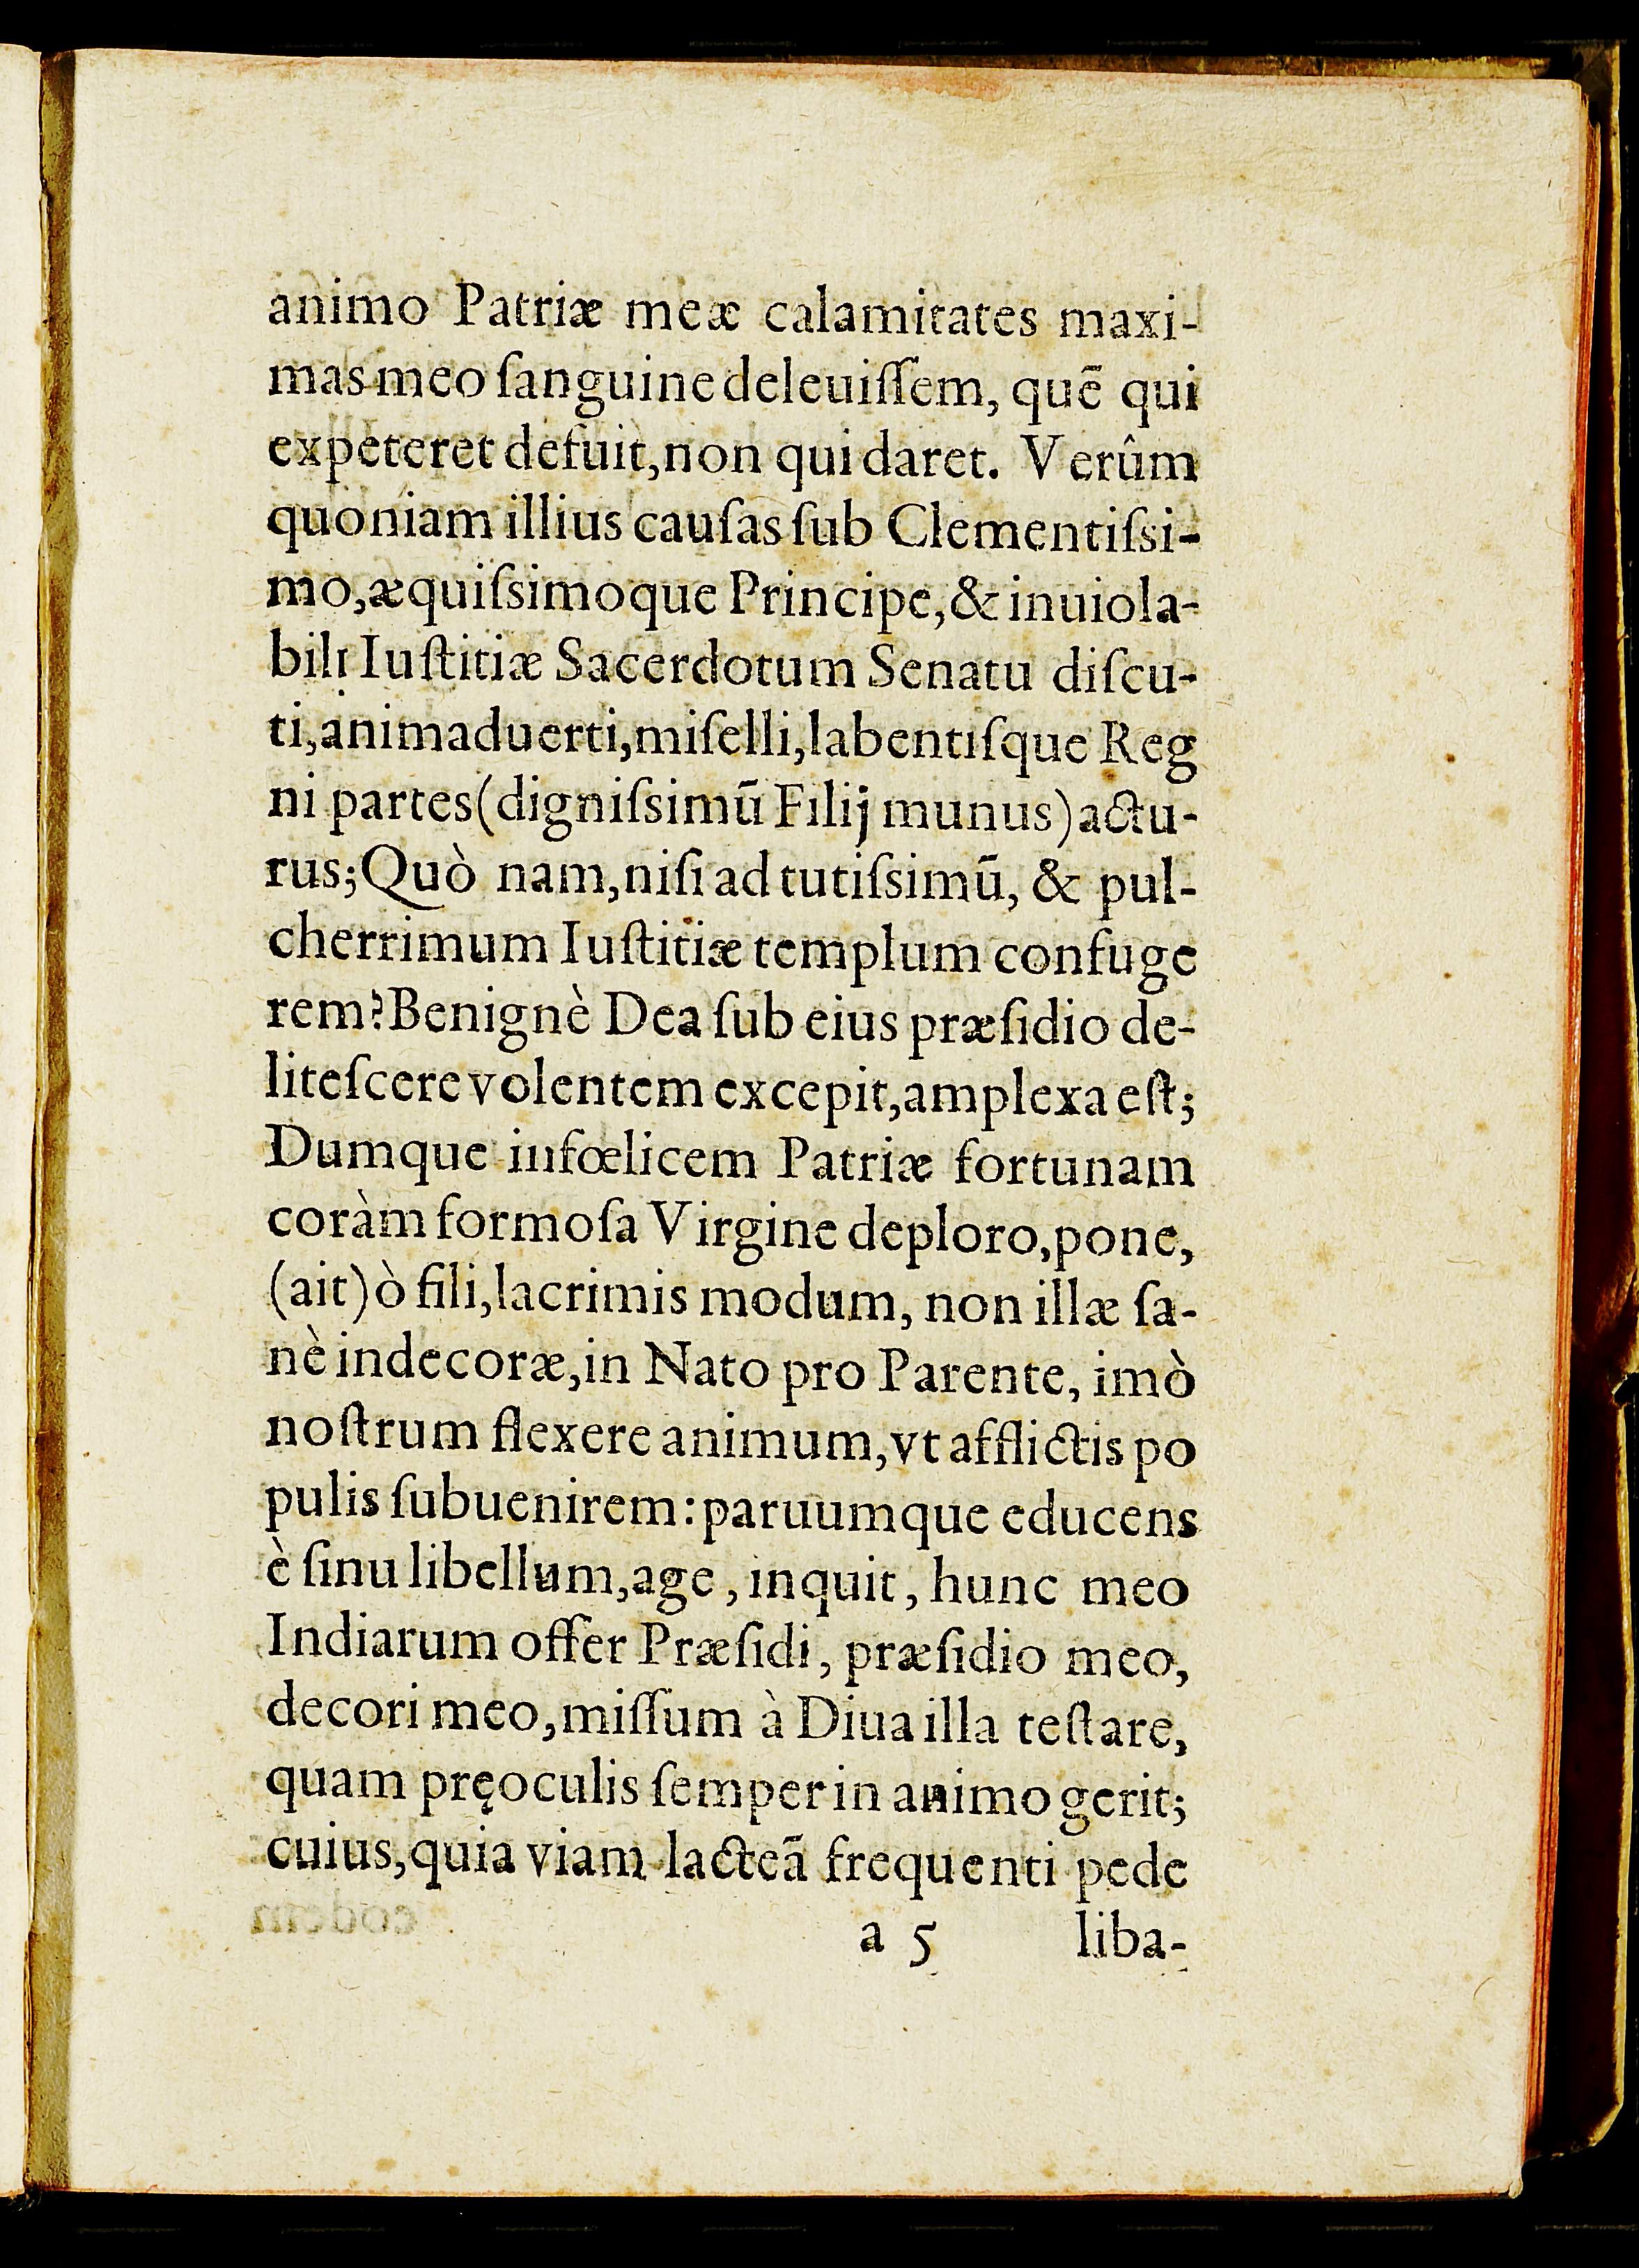 animo Patriæ meæ calamitates maxi-
mas meo ſanguine deleuiſſem, quē qui
expeteret defuit,non qui daret. Verûm
quoniam illius cauſas ſub Clementiſsi-
mo,æquiſsimoque Principe,& inuiola-
bili Iuſtitiæ Sacerdotum Senatu diſcu-
ti,animaduerti,miſelli,labentiſque Reg
ni partes(digniſsimū Filij munus)actu-
rus;Quò nam,niſi ad tutiſsimū, & pul-
cherrimum Iuſtitiæ templum confuge
rem?Benignè Dea ſub eius præſidio de-
liteſcere volentem excepit,amplexa eſt;
Dumque infœlicem Patriæ fortunam
coràm formoſa Virgine deploro,pone,
(ait)ò fili,lacrimis modum, non illæ ſa-
nè indecoræ,in Nato pro Parente, imò
noſtrum flexere animum,vt afflictis po
pulis ſubuenirem:paruumque educens
è ſinu libellum,age, inquit, hunc meo
Indiarum offer Præſidi, præſidio meo,
decori meo,miſſum à Diua illa teſtare,
quam pręoculis ſemper in animo gerit;
cuius,quia viam lacteā frequenti pede
a 5 liba-